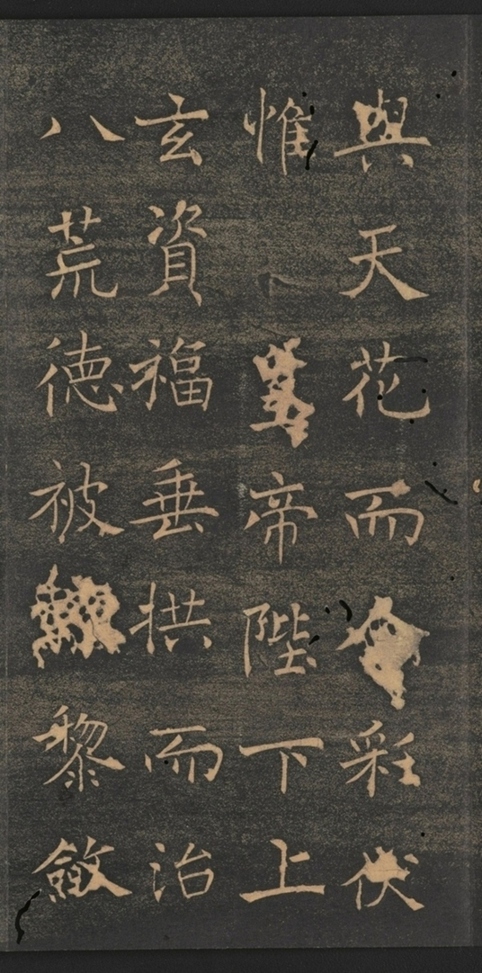 與天花而彩伏
惟帝陛下上
玄資福垂拱而治
八荒德被黎斂